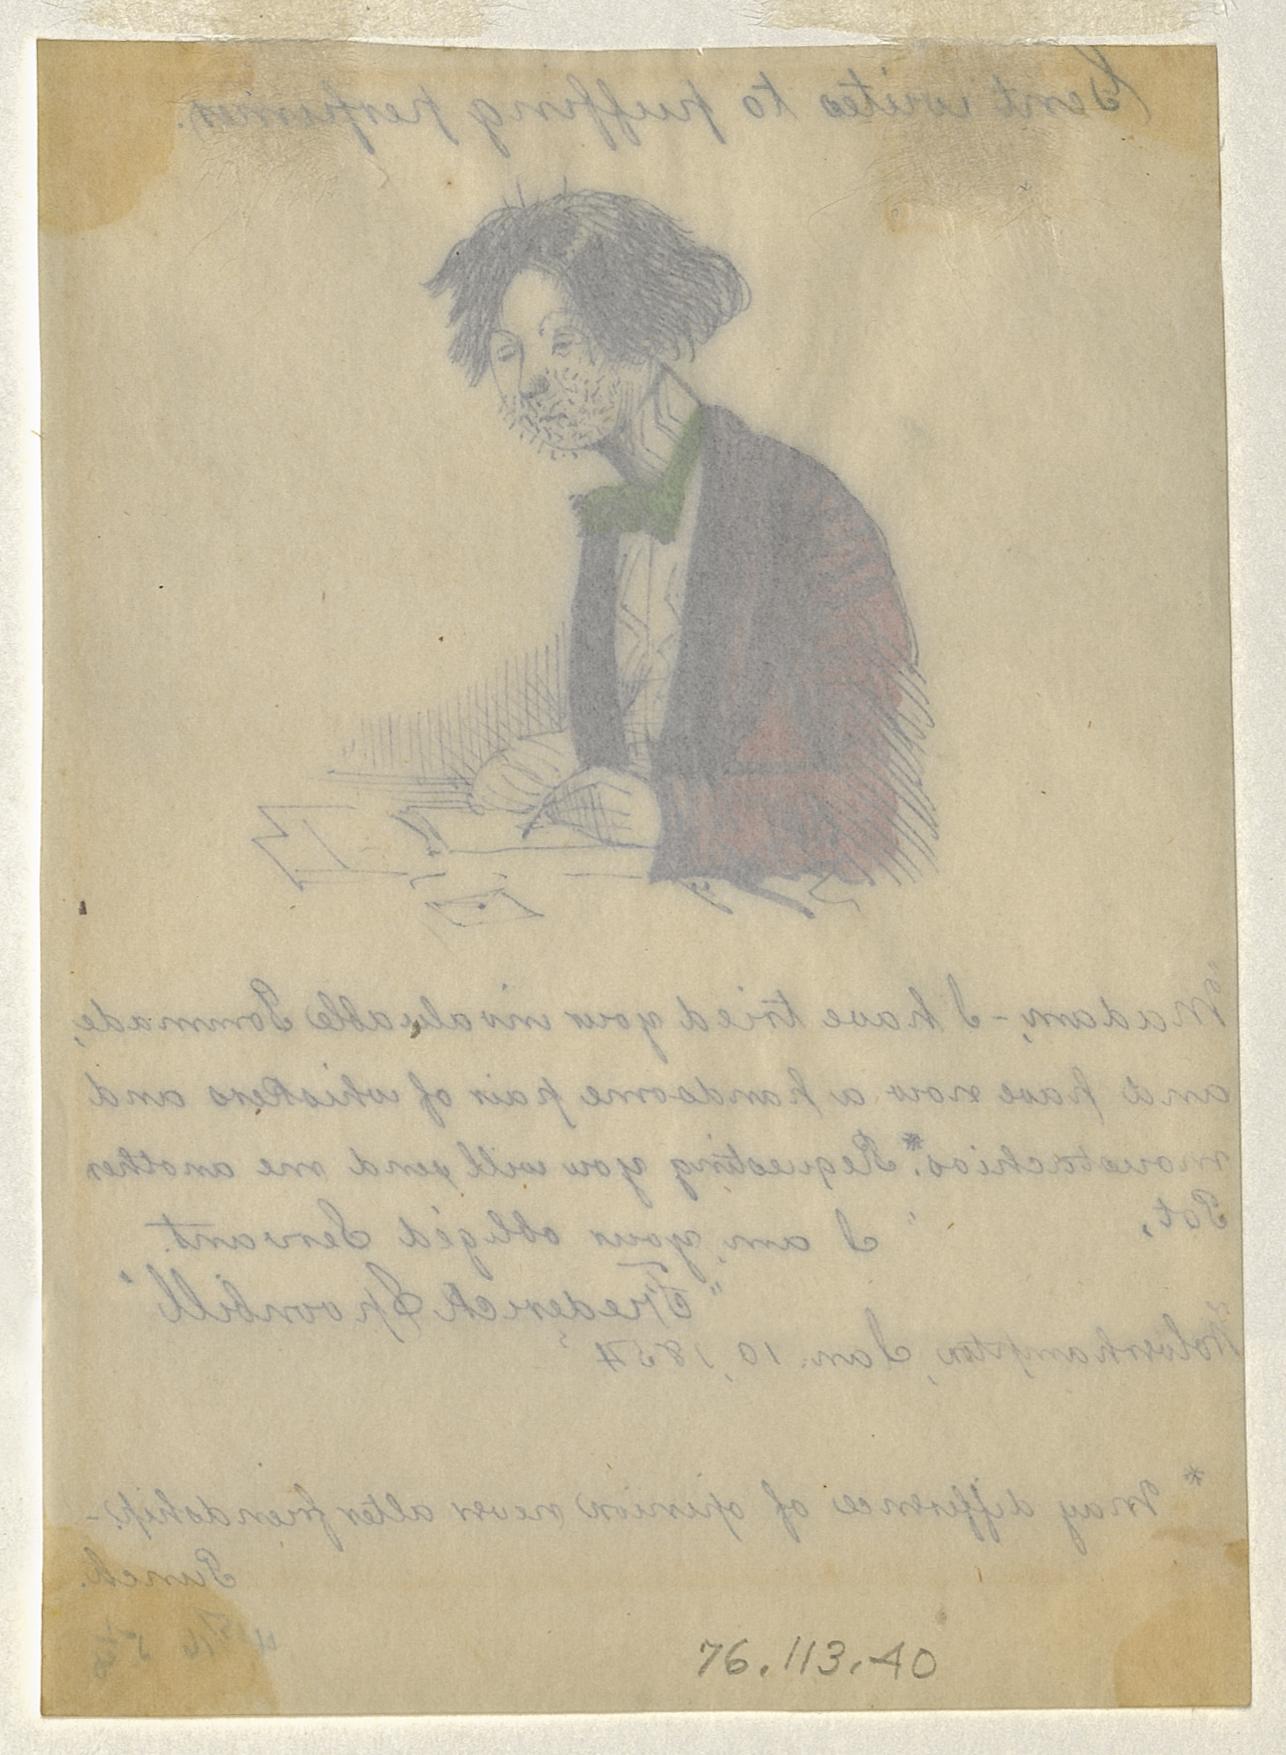 Gent writes to puffing perfumer.
"Madam, - I have tried your invaluable Pommade,
and have now a handsome pair of whiskers and
moustachios*. Requesting you will send me another
Pot,
I am, your obliged Servant.
"Frederick Spoonbill"
Wolverhampton, Jan. 10, 1854
* May difference of opinion never alter friendship. -
Punch.
76.113.40